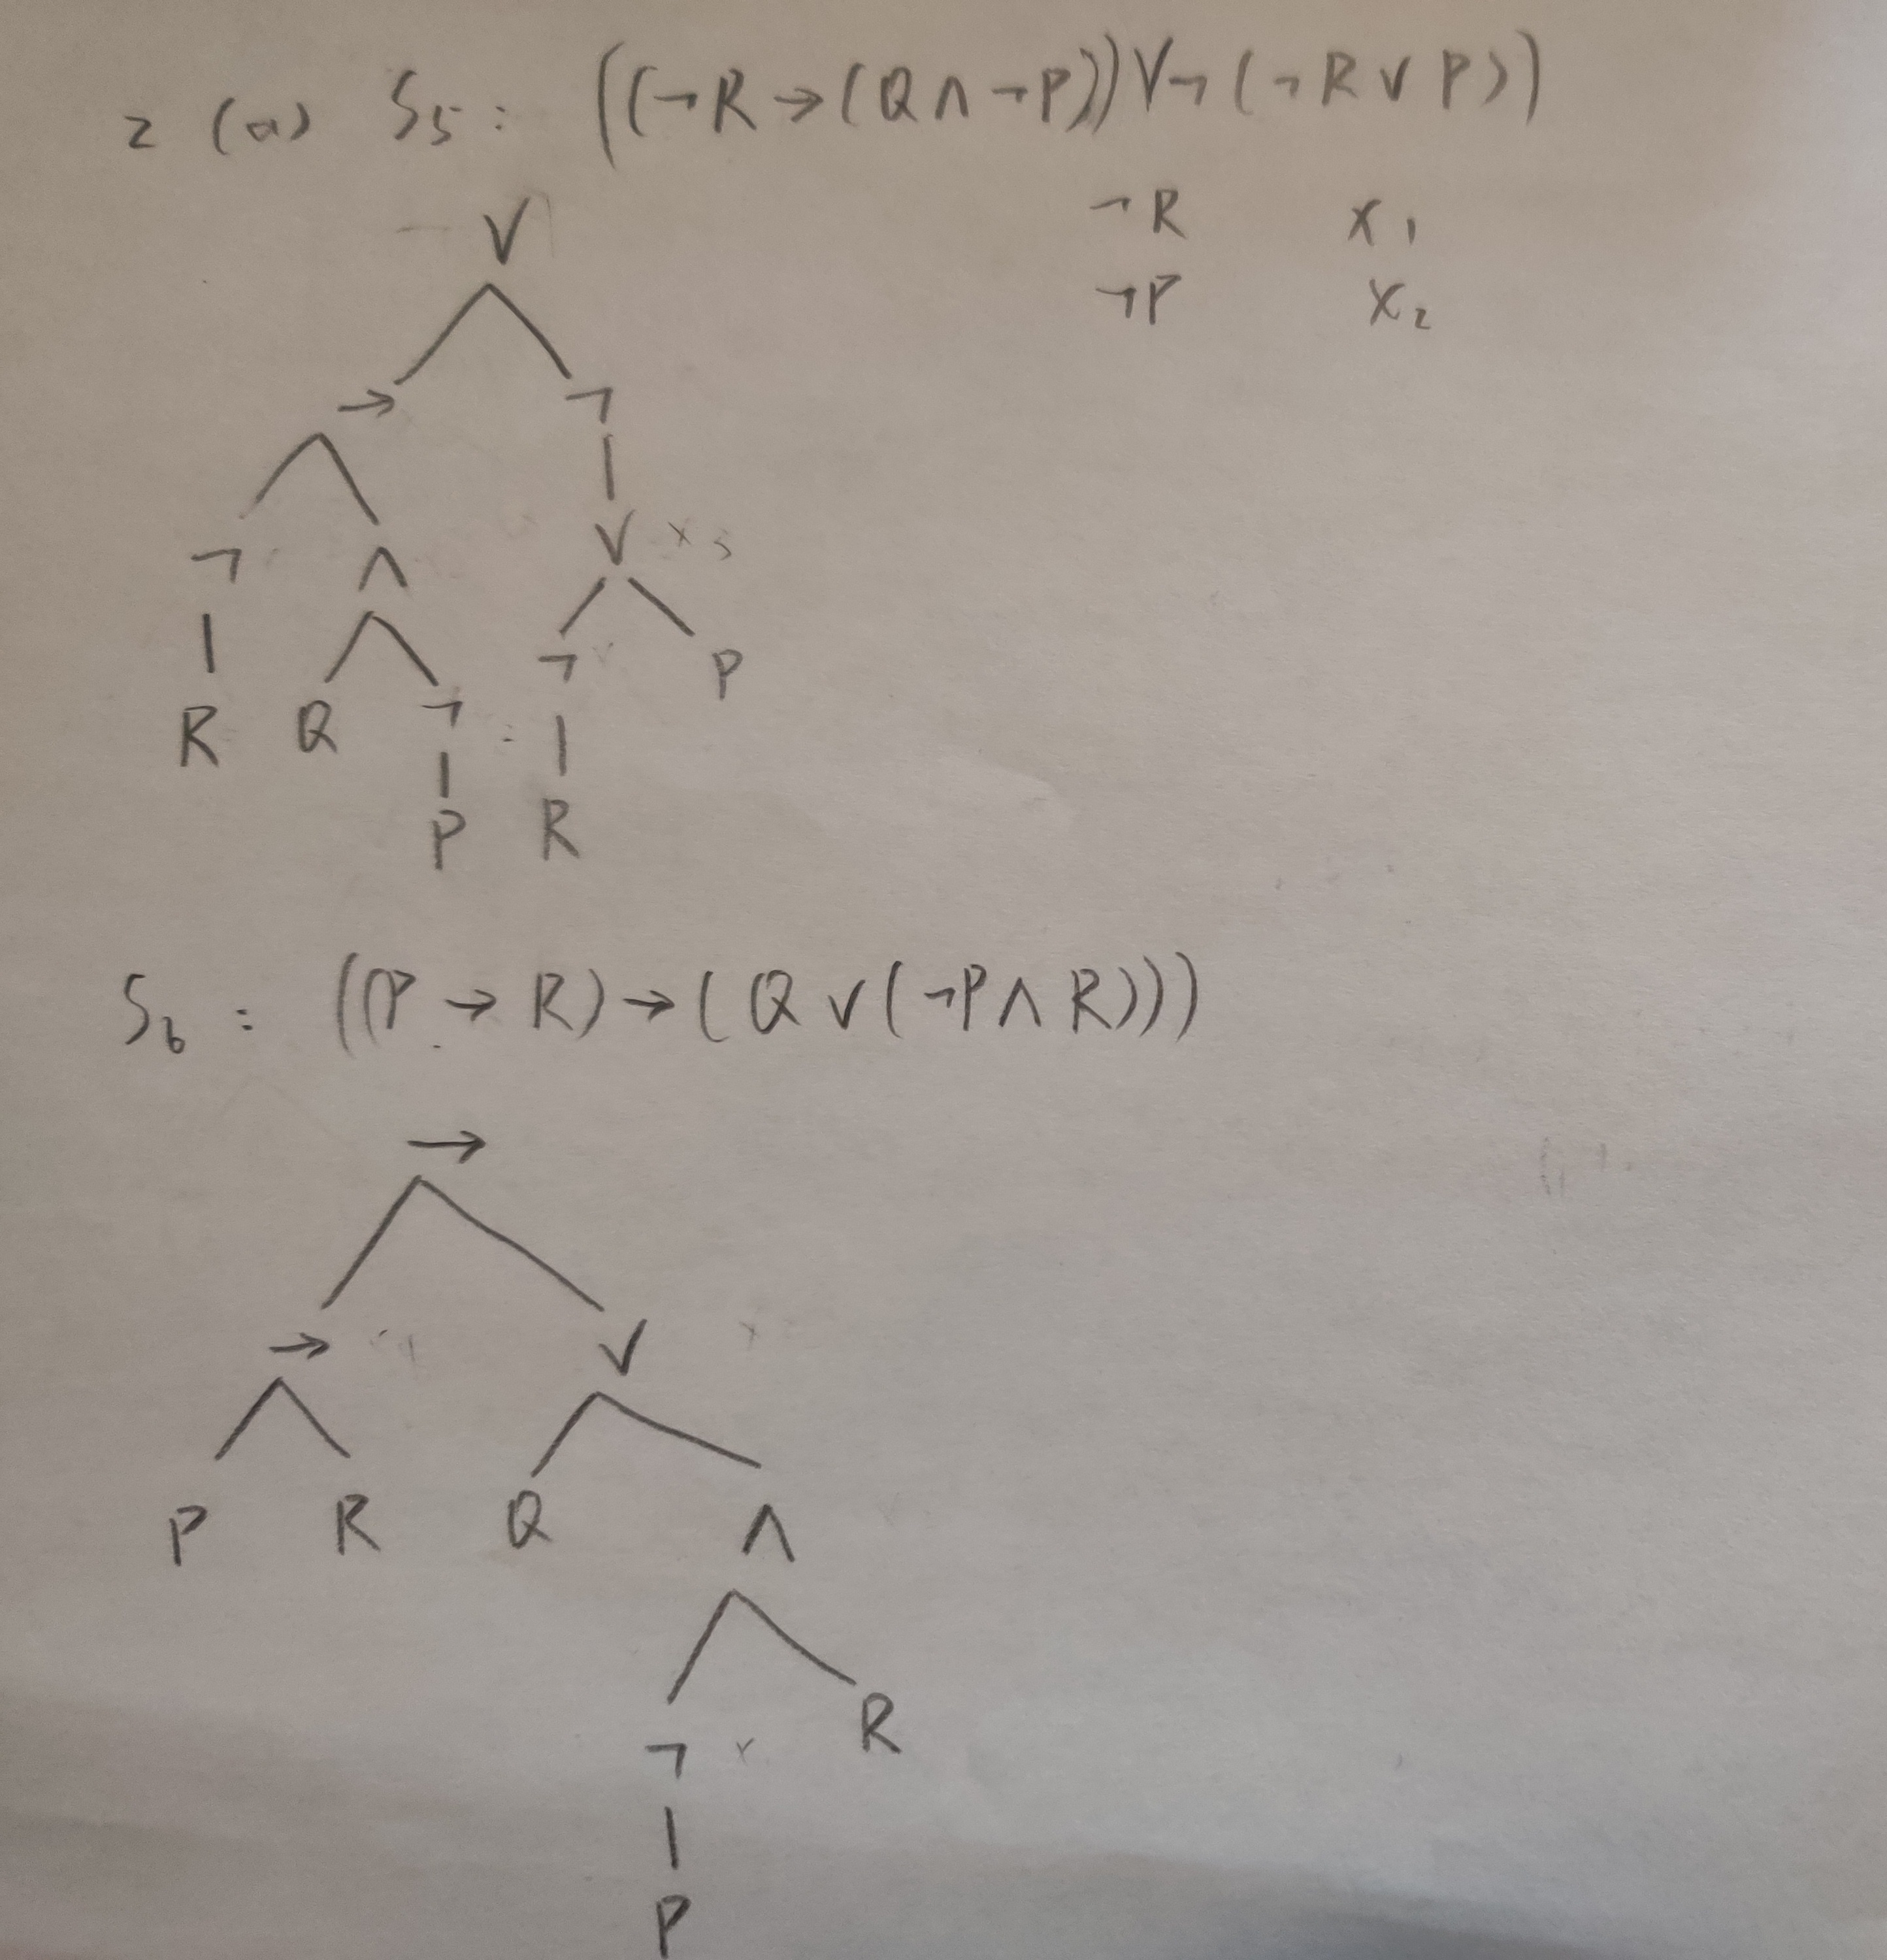 2 (a) S5: ((¬R→(Q∧¬P))∨¬(¬R∨P))
¬R x1
¬P x2
∨
→ ¬
¬ ∧ ∨ x3
R Q ¬ ¬ P
P R
S6: ((P→R)→(Q∨(¬P∧R)))
→
→ ∨
P R Q ∧
¬ R
P